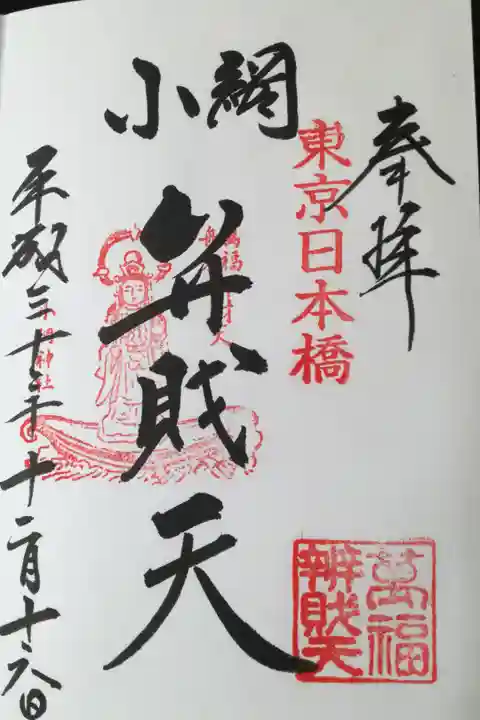 奉拝
東京日本橋
小網
弁財天
萬福
辨財天
平成三十年十二月十六日